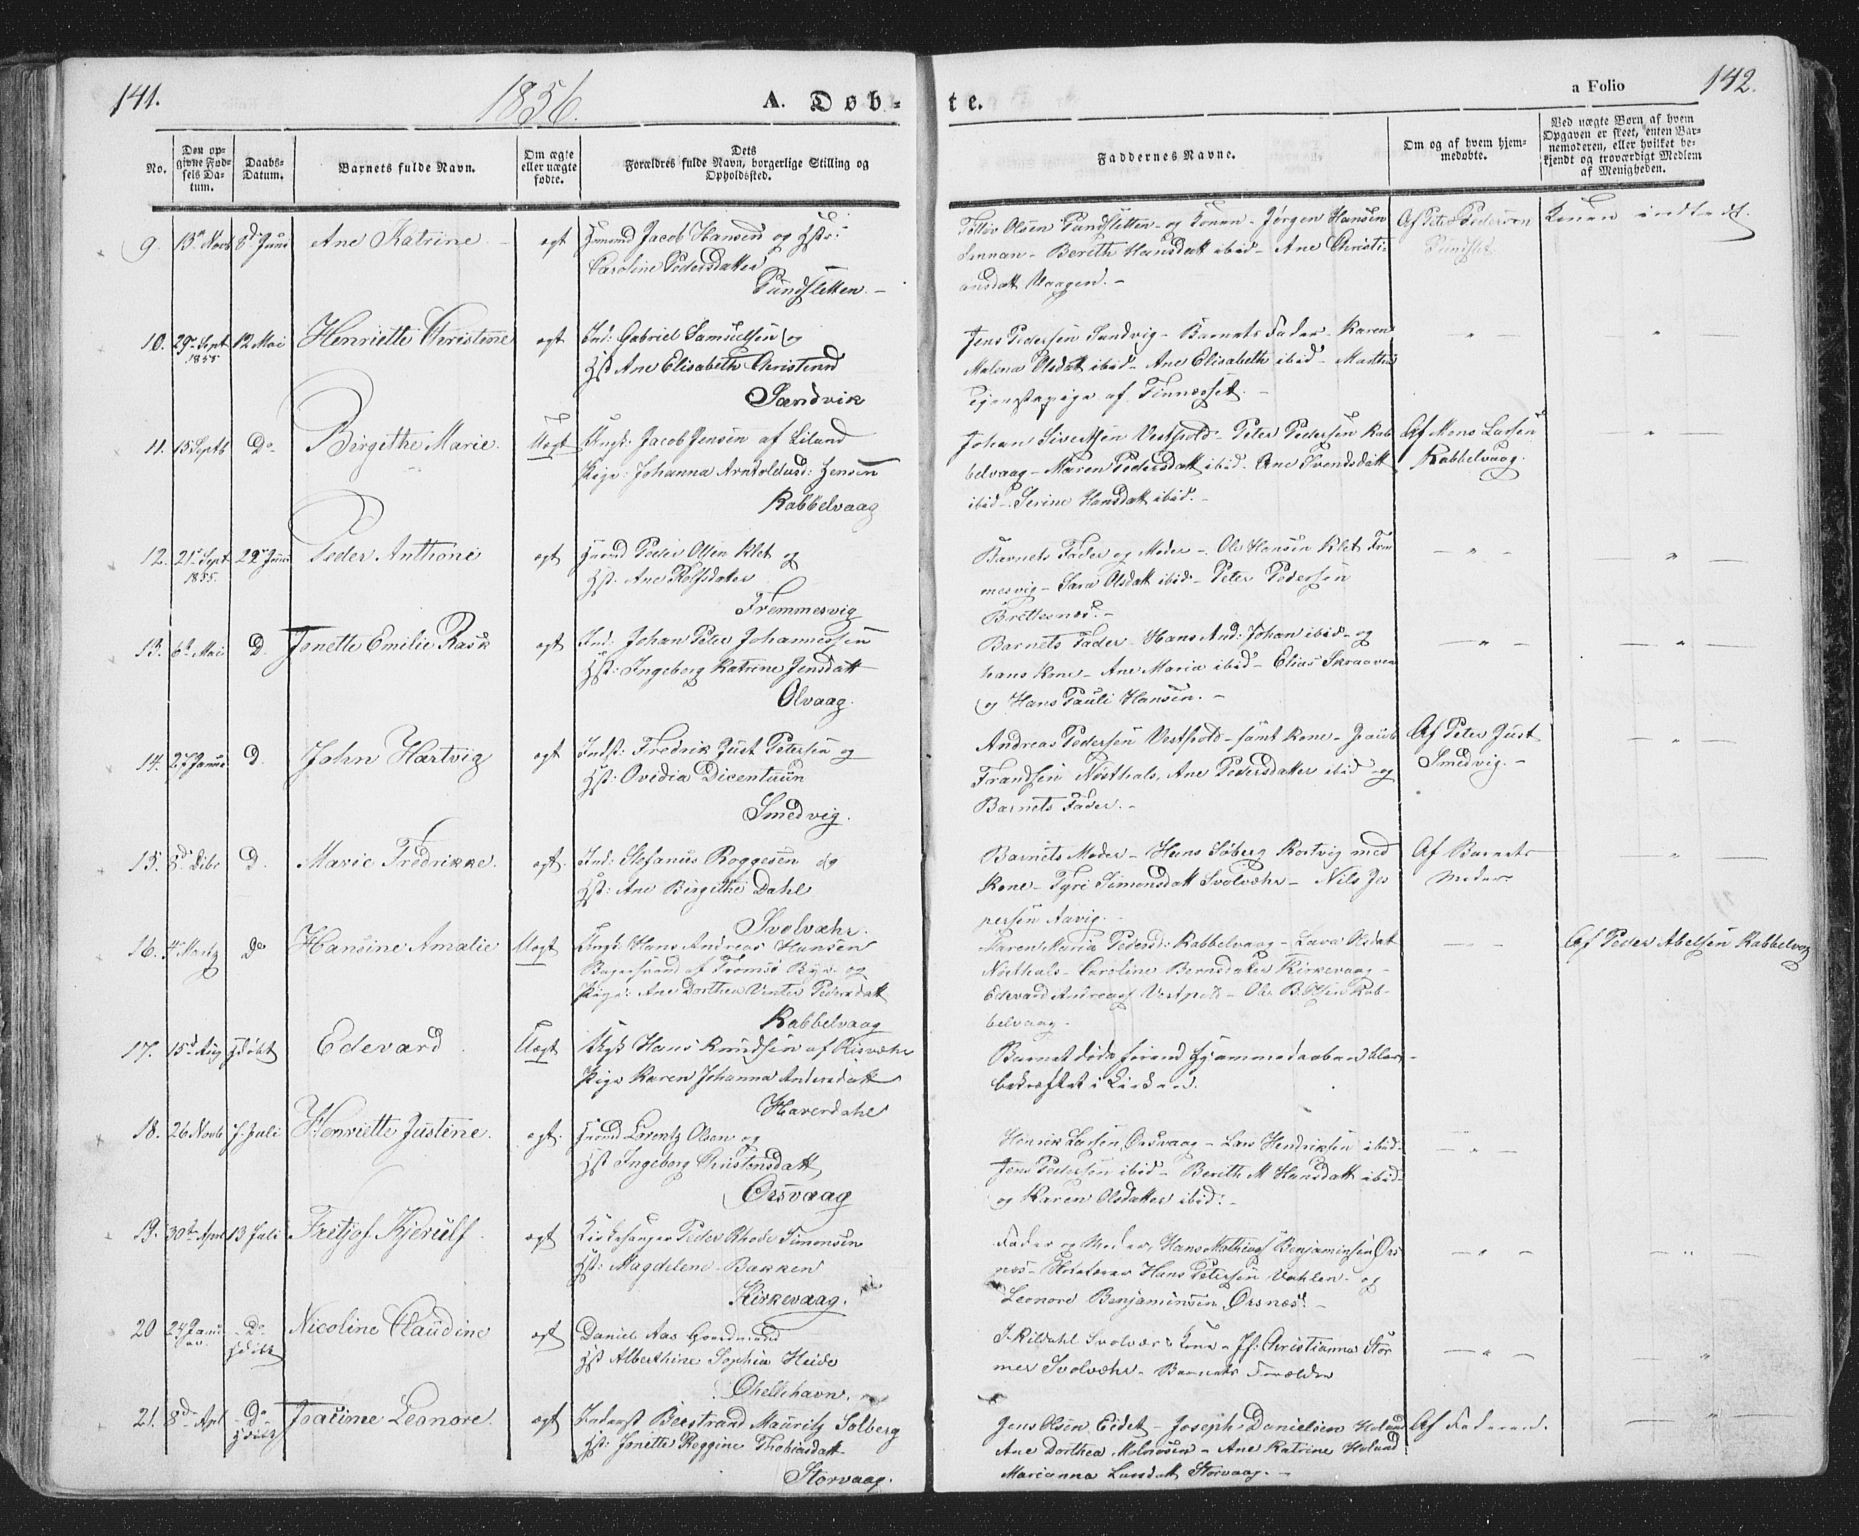 141.
1856.
A. Døb-
te.
a Folio
142.
No.
Den op-
givne Fød-
sels Da-
tum.
Daabs-
Datum.
Barnets fulde Navn.
Om ægte
eller uægte
fødte.
Dets
Forældres fulde Navn, borgerlige Stilling og
Opholdssted.
Faddernes Navne.
Om og af hvem hjem-
medøbte.
Ved uægte Børn, af hvem
Opgaven er skeet, enten Bar-
nemoderen, eller hvilket be-
kjendt og troværdigt Medlem
af Menigheden.
9. 13de Novb 8de Juni Ane Katrine egt Jacob Hansen og Hst:
Caroline Pedersdatter
Pundsletten.
Olsen Pundsletten og Konen - Jørgen Hansen
- Berith Hansdatt ibid - Ane Christi
ansdatt Vaagen. -
Af Peter Pedersen
Pundslet
10. 29 Sept 12 Mai Henriette Christine egt Ind: Gabriel Samuelsen og
1855
Hst Ane Elisabeth Christensd
Sandvik
Jens Pedersen Sandvig - Barnets Fader - Karen
Malena Olsdatt ibid - Ane Elisabeth ibid - Marthe
Tjenstepige af Finnesset. -
11. 15 Septb Do Birgithe Marie. Uegt Ungk: Jacob Jensen af Liland
Pige: Johanna Arntoldusd: Jensen
Rabbelvaag
Johan Sivertsen Vestpold - Peter Pedersen Rab
belvaag - Maren Pedersdatt ibid - Ane Svendsdatt
ibid - Serine Hansdatt ibid. -
Af Mons Larsen
Rabbelvaag.
12. 21 Sept 22 Juni Peder Anthone egt Peder Olsen Klet og
1855.
Hst: Ane Rolfsdatter
Fremmesvig
Barnets Fader og Moder - Ole Hansen Klet Frem
mesvig - Sara Olsdatt ibid - Peter Pedersen
Brettesnes. -
13. 6te Mai D. Jonette Emilie Rask egt Ind: Johan Peter Johannessen
Hst: Ingeborg Katrine Jensdatt
Olvaag.
Barnets Fader - Hans And: Johan ibid - og
hans Kone - Ane Maria ibid - Elias Skraaven
og Hans Pauli Hansen. -
14. 27 Janua D. John Hartvig egt Indst: Fredrik Just Petersen og
Hst: Ovedia Dicentuun
Smedvig.
Andreas Pedersen Vestpold - samt Kone - Jacob
Frandsen Nøsthals, Ane Pedersdatter ibid - og
Barnets Fader. -
Af Peter Just
Smedvig. -
15. 8de Dcbr D. Marie Fredrikke. egt. Ind: Stefanus Roggesen og
Hst: Ane Birgithe Dahl
Svolvæhr.
Barnets Moder - Hans Søberg Kortvig med
Kone - Tyri Simonsdatt Svolvæhr - Nils Jes
persen Aavig. -
Af Barnets
Moder.
16. 4 Martz do Hansine Amalie Uegt Ungk: Hans Andreas Hansen
af Tromsø Bye og
Pige: Ane Dorthea Venter Pedersdatt
Rabbelvaag
Maren Maria Pedersd: Rabbelvaag - Lava Olsdat
Nøsthals - Caroline Berntsdatter Kirkevaag -
Edevard Andreas Vestpold - Ole Rab-
belvaag -
Af Peder Abelsen Rabbelvag
17. 15de Aug hjdøbt Edevard Uægt Ungk Hans Knudsen af Risvæhr
Pige Karen Johanna Andersdatt
Haverdahl
Barnet døde førend Hjemmedaaben blev
bekræftet i Kirken.
18. 26 Novb 7. Juli Henriette Justine. egt. Lorentz Olsen og
Hst Ingeborg Christensdatt
Orsvaag
Henrik Larsen Ørsvaag - Lars Hendriksen ibid -
Jens Pedersen ibid - Berith M Hansdatt ibid -
og Karen Olsdatter ibid. -
19. 30te Apri 13 Juli Fritjof Kjerulf. egt Kirkesanger Peder Rhode Simonsen
Hst: Magdelene Bakken
Kirkevaag.
Fader og Moder, Hans Mathias Benjaminsen Ørs
nes - Hans Petersen Vahlen - og
Leonore Benjaminsen Ørsnes. -
20 24 Janu Do Nicoline Claudine egt Daniel Aas
hjdøbt
Hst Alberthine Sophia Heide
Ohellehavn.
J. Kildahl Svolvær & Kone - Jf: Christianna Stor
mer Svolvæhr - Barnets Forældre
21. 8de Apl Do Joacime Leonore. egt Inderst Berstrand Mauritz Solberg
hjdøbt
Hst: Jonette Reggine Thobiasdatt
Storvaag.
Jens Olsen Eidet - Joseph Danielsen Holand
Ane Dorthea - Ane Katrine Holand
Marianna Larsdatt Storvaag. -
Af Faderen.